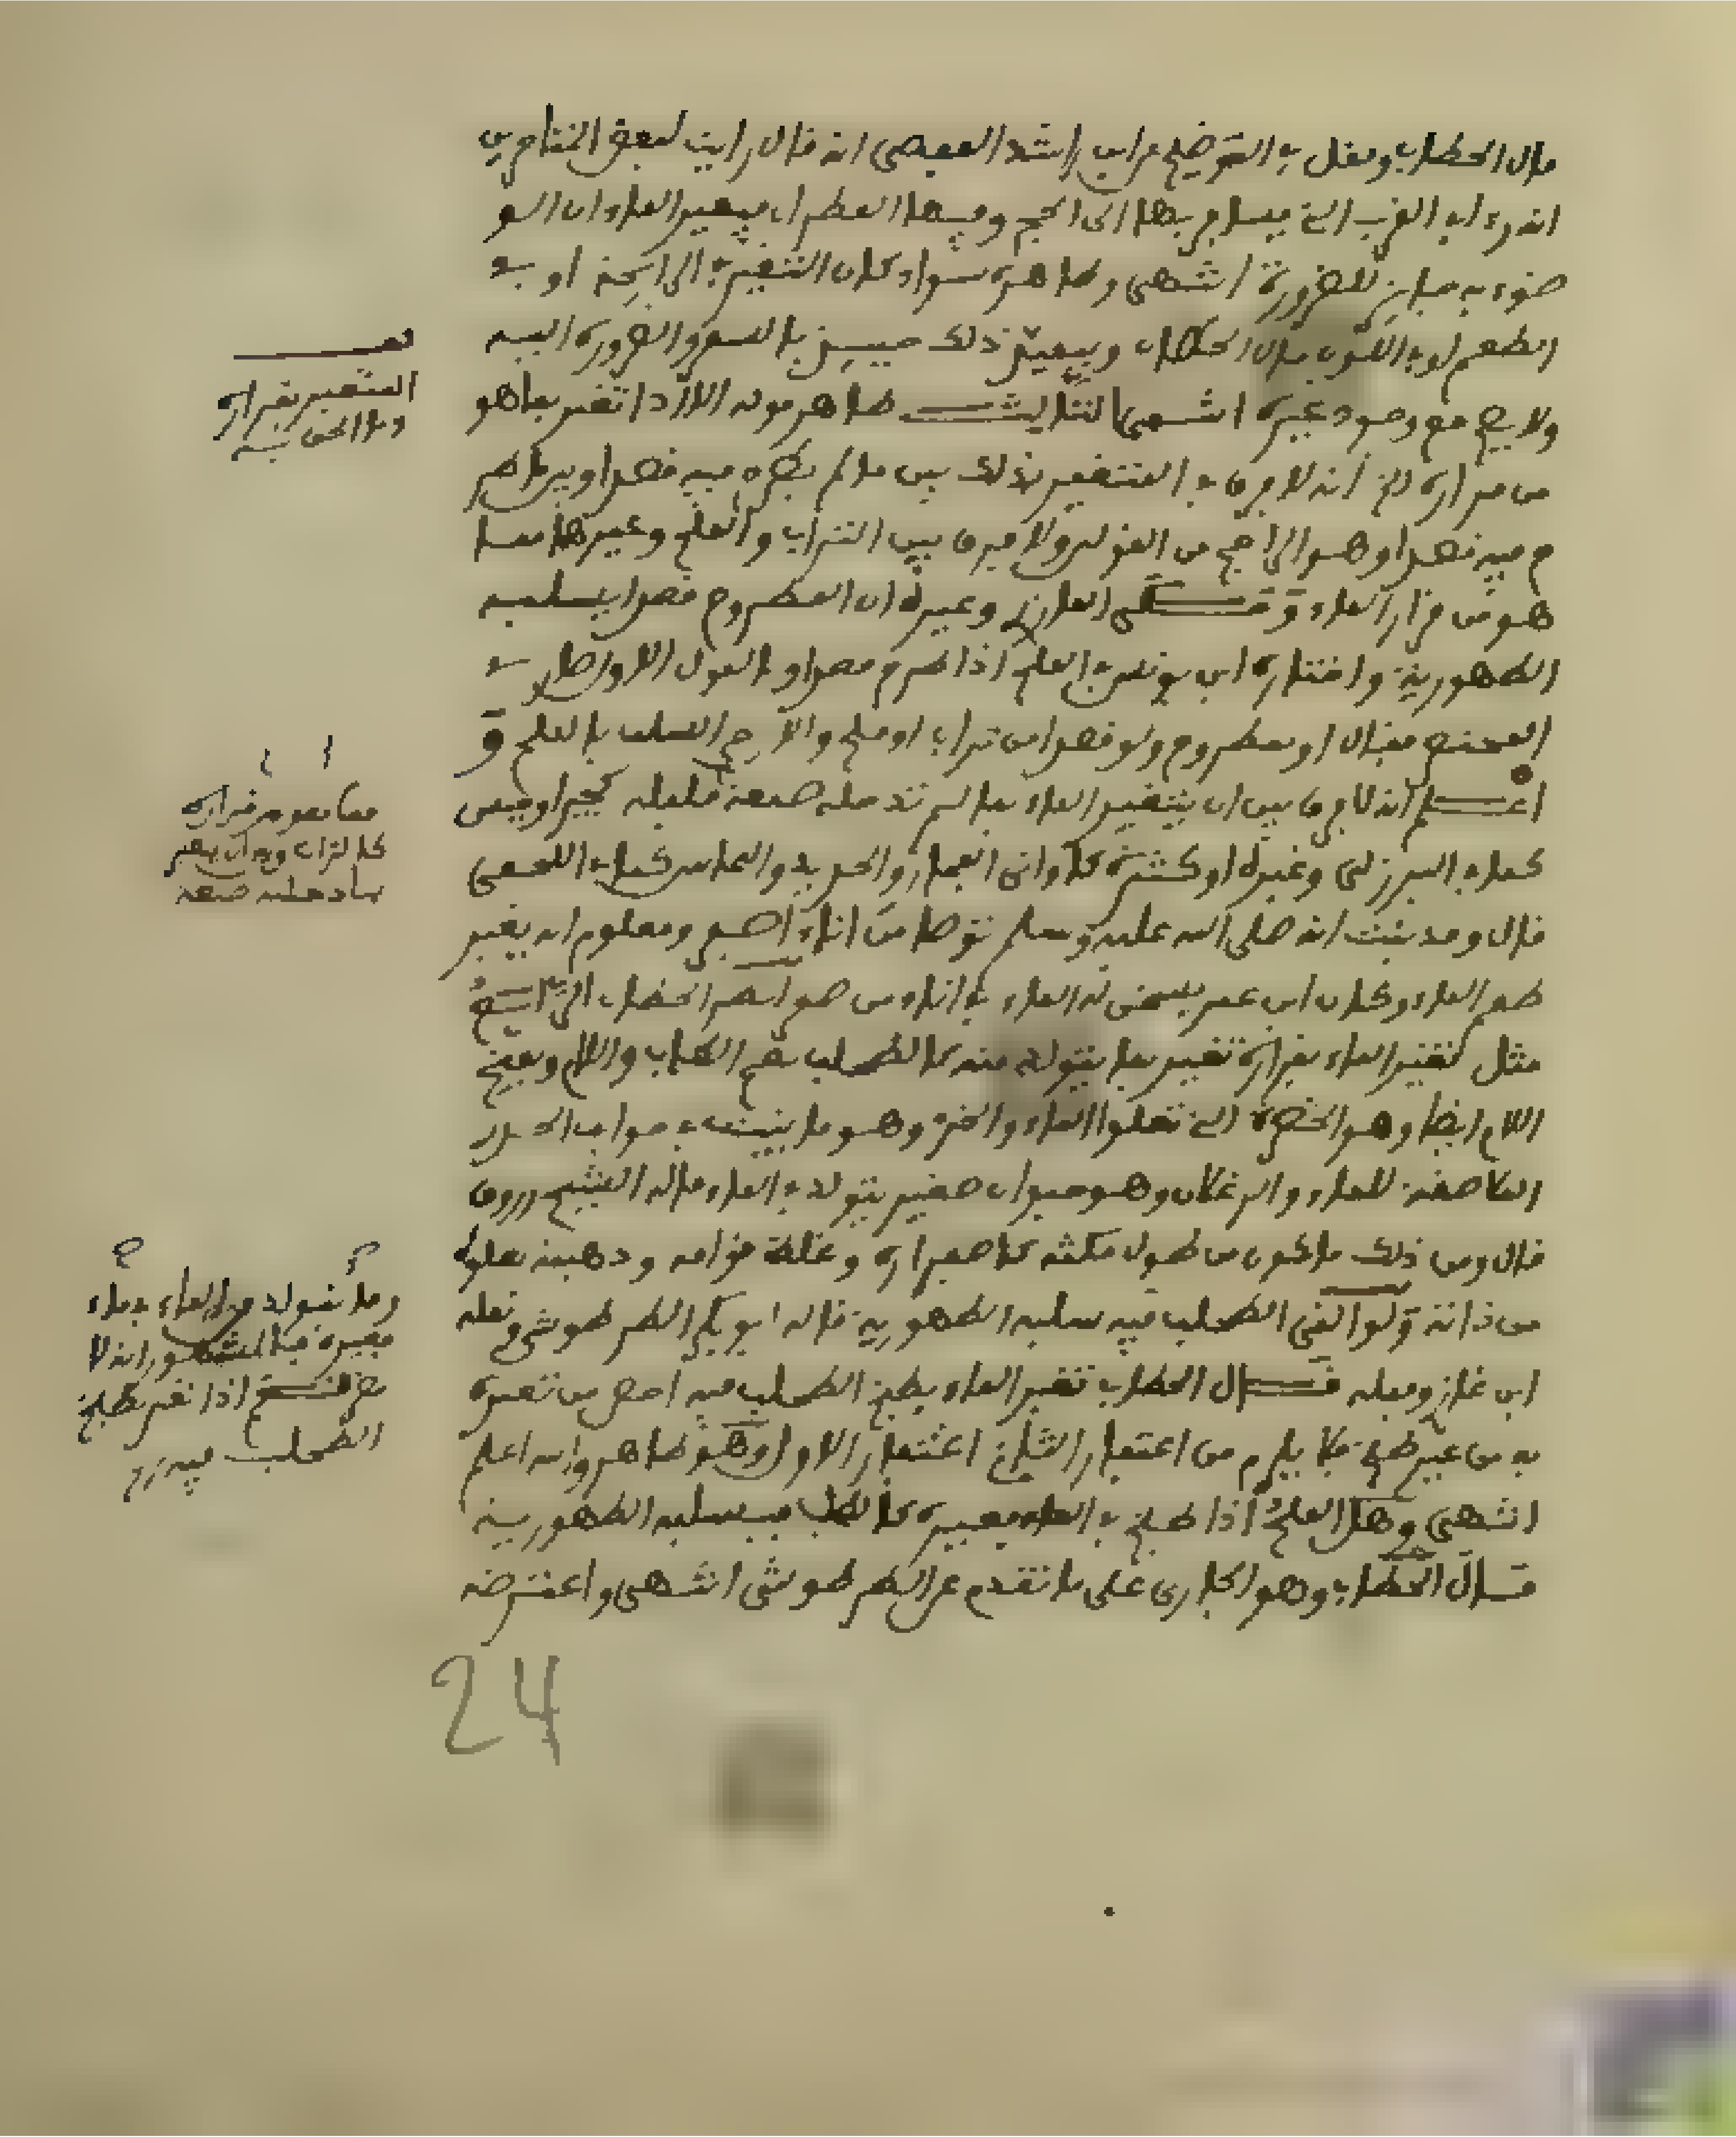 قال الحطاب ونقل في التوضيح عن ابن راشد القفصي انه قال رايت لبعض المتاخرين
انه راى في القرب التي يسافر بها الى الحج وفيها القطران فيتغير الماء ان الو
ضوء به جايز للضرورة انتهى وظاهره سواء كان التغير في الرايحة او في
الطعم او في اللون قال الحطاب ويتعين ذلك حينئذ بالسفر والضرورة اليه
ولا يصح مع وجود غيره انتهى الثالث ظاهر قوله الا اذا تغير بما هو
من قراره الخ انه لا فرق في المتغير بذلك بين ما لم يطرح فيه قصدا وبين ما طر
ح فيه قصدا وهو الراجح من القولين ولا فرق بين التراب والملح وغيرهما مما
هو من قرار الماء وحكى المازري وغيره ان المطروح قصدا يسلبه
الطهورية واختاره ابن يونس في الملح اذا طرح قصدا وبالقول الاول صدر في
المختصر فقال او بمطروح ولو قصدا من تراب او ملح والارجح السلب بالملح و
اعلم انه لا فرق بين ان يتغير الماء بما لم تدخله صنعة قليلة كجير او جبس
كما في البرزلي وغيره او كثيرة كاواني الفخار والحديد والنحاس كما في اللخمي
قال وقد ثبت انه صلى الله عليه وسلم توضا من اناء اصفر ومعلوم انه يغير
طعم الماء وكان ابن عمر يسخن له الماء في اناء من صفر انظر الحطاب الرابع
مثل تغير الماء بقراره تغيره بما يتولد منه كالطحلب بضم الطاء واللام وبفتح
اللام ايضا وهو الخضرة التي تعلوا الماء والخز وهو ما ينبت في جوانب الجدر
الملاصقة للماء والزغلان وهو حيوان صغير يتولد في الماء قاله الشيخ زروق
قال ومن ذلك ما تكون من طول مكثه كاصفراره وغلظ قوامه ودهنية تعلوه
من ذاته ولو القي الطحلب فيه سلبه الطهورية قاله ابو بكر الطرطوشي ونقله
ابن غازي وقبله قال الحطاب تغير الماء بطبخ الطحلب فيه اخص من تغيره
به من غير طبخ فلا يلزم من اغتفار الثاني اغتفار الاول وهو ظاهر والله اعلم
انتهى وهل الملح اذا طبخ في الماء بغيره كالطحلب فيسلبه الطهورية
قال الحطاب وهو الجاري على ما تقدم عن الطرطوشي انتهى واعترضه
المتغير بقراره
كالتراب
بما دخلته صنعة
وما يتولد من الماء
فالمشهور انه لا
يضر اذا تغير بطبخ
الطحلب فيه
24